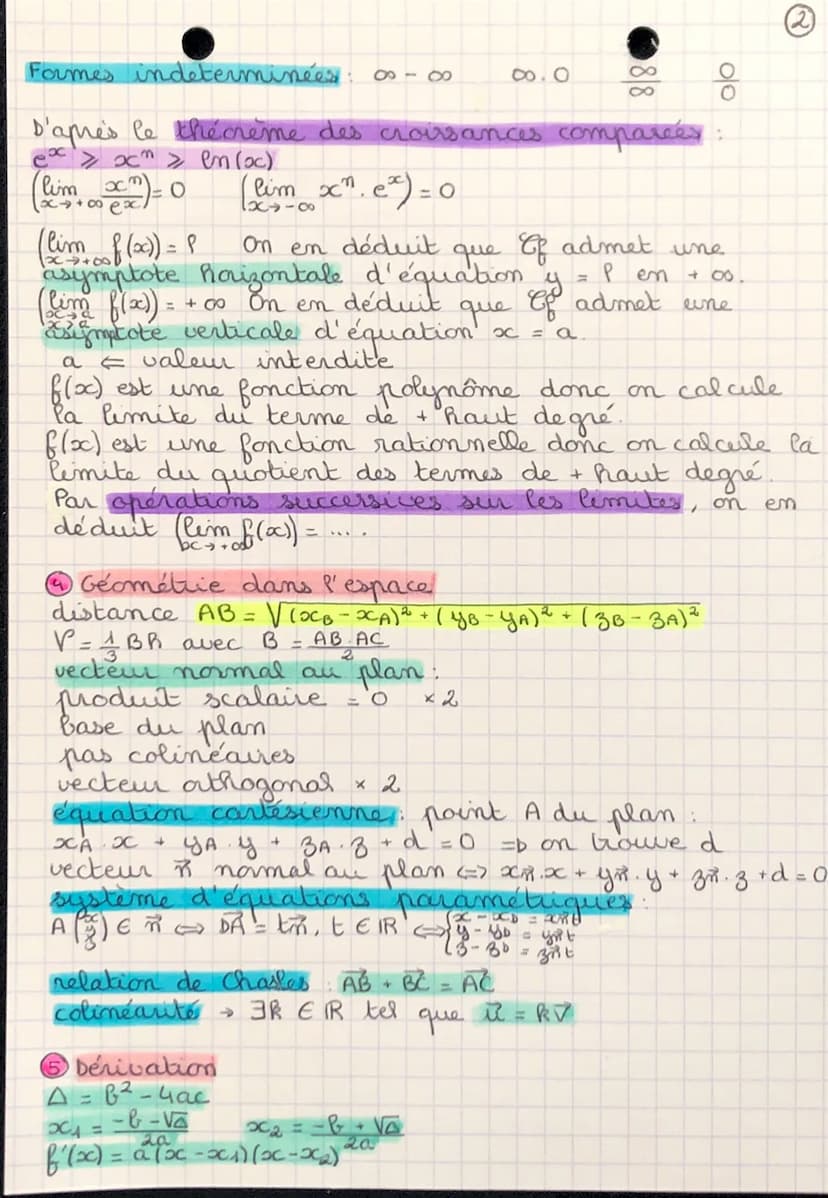 2
Formes indeterminées : ∞ - ∞ ∞.0 ∞/∞ 0/0
D'après le théorème des croissances comparées :
e^x ⩾ x^n ⩾ ln(x)
(lim x→+∞ x^n/e^x) = 0 (lim x→-∞ x^n . e^x) = 0
(lim x→+∞ f(x)) = l On en déduit que Cf admet une
asymptote horizontale d'équation y = l en + ∞.
(lim x→a x>a f(x)) = + ∞ On en déduit que Cf admet une
asymptote verticale d'équation x = a.
a ⇐ valeur interdite
f(x) est une fonction polynôme donc on calcule
la limite du terme de + haut degré.
f(x) est une fonction rationnelle donc on calcule la
limite du quotient des termes de + haut degré.
Par opérations successives sur les limites, on en
déduit (lim x→+∞ f(x)) = ....
4 Géométrie dans l'espace
distance AB = √(xB - xA)² + (yB - yA)² + (zB - zA)²
V = 1/3 Bh avec B = AB.AC/2
vecteur normal au plan :
produit scalaire = 0 × 2
base du plan
pas colinéaires
vecteur orthogonal × 2
équation cartésienne : point A du plan :
xA.x + yA.y + zA.z + d = 0 => on trouve d
vecteur n⃗ normal au plan <=> xn⃗.x + yn⃗.y + zn⃗.z + d = 0
système d'équations paramétriques :
A (x y z) ∈ n⃗ <=> DA⃗ = tn⃗, t ∈ IR <=> { x - xD = xn⃗t
y - yD = yn⃗t
z - zD = zn⃗t
relation de Chasles : AB⃗ + BC⃗ = AC⃗
colinéarité → ∃k ∈ IR tel que u⃗ = kv⃗
5 Dérivation
Δ = b² - 4ac
x₁ = -b - √Δ / 2a x₂ = -b + √Δ / 2a
f'(x) = a(x - x₁)(x - x₂)